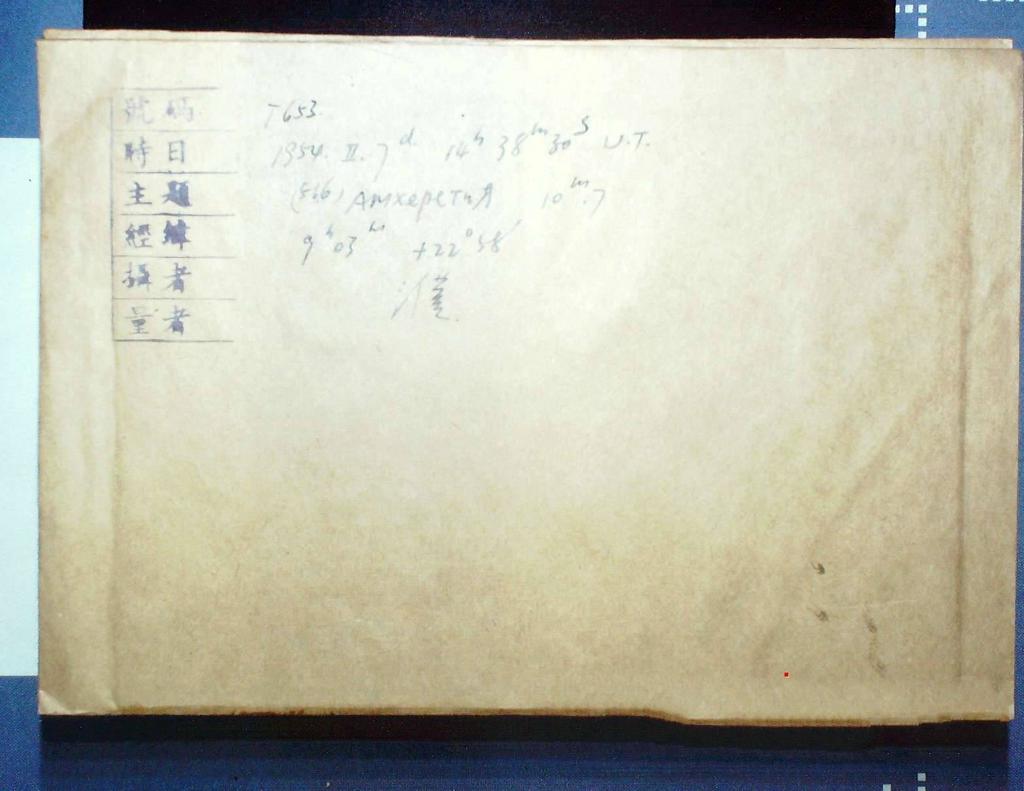 號碼 T653.
時日 1954. II. 7ᵈ 14ʰ 38ᵐ 30ˢ U.T.
主題 (516) Амхерстия 10ᵐ.7
經緯 9ʰ 03ᵐ +22°58′
攝者
量者